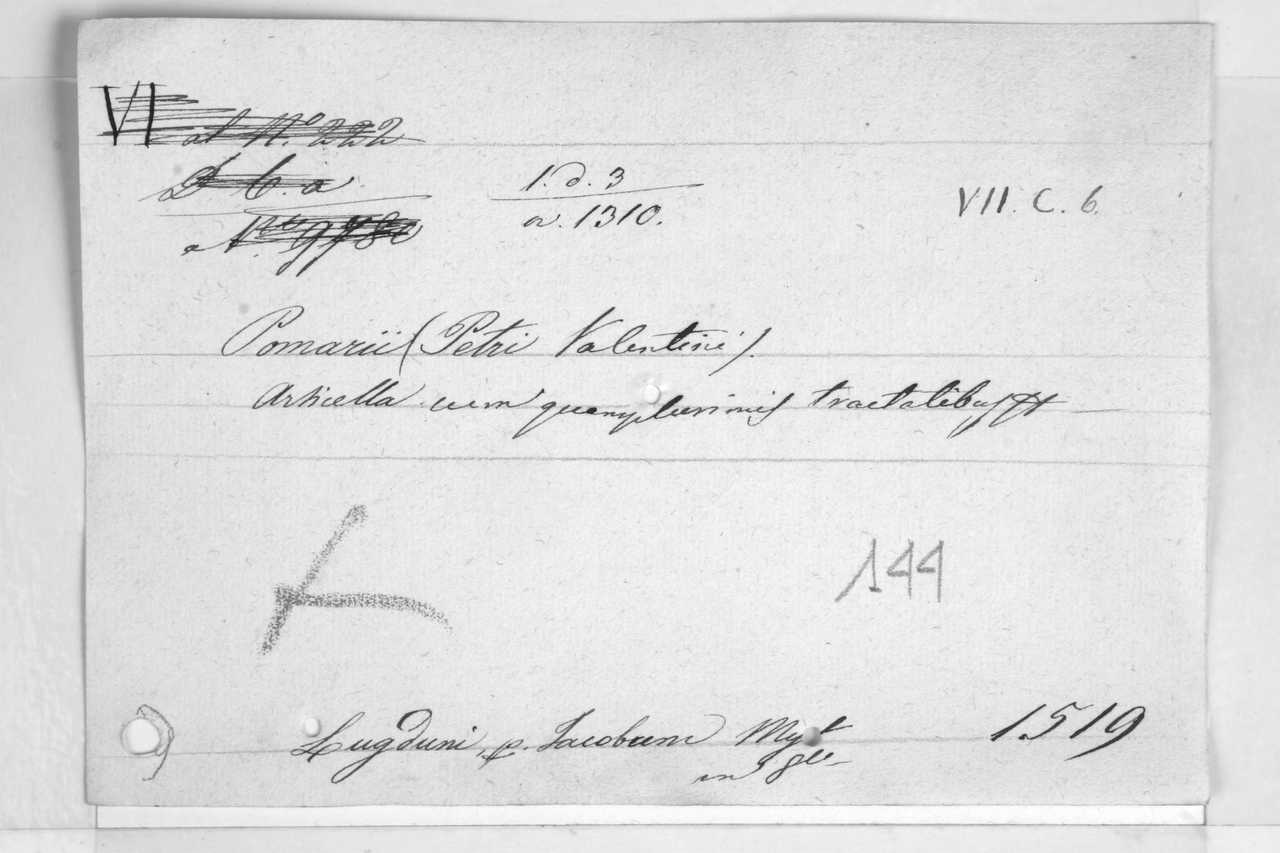 VI
ad No 222
D b. a
1. d. 3
a. 1310.
VII. C. 6.
Pomarii (Petri Valentini).
Articella cum quamplurimis tractatibus
144
Lugduni, p. Jacobum Myt
in 8o
1519